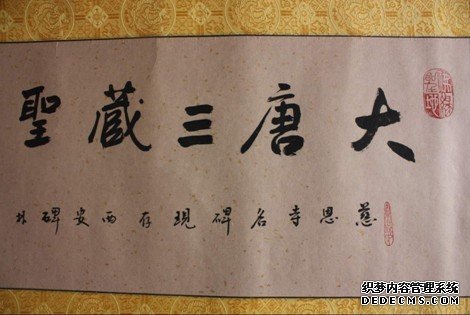 大唐三藏聖
慈恩寺名碑現存西安碑林
织梦内容管理系统
DEDECMS.COM